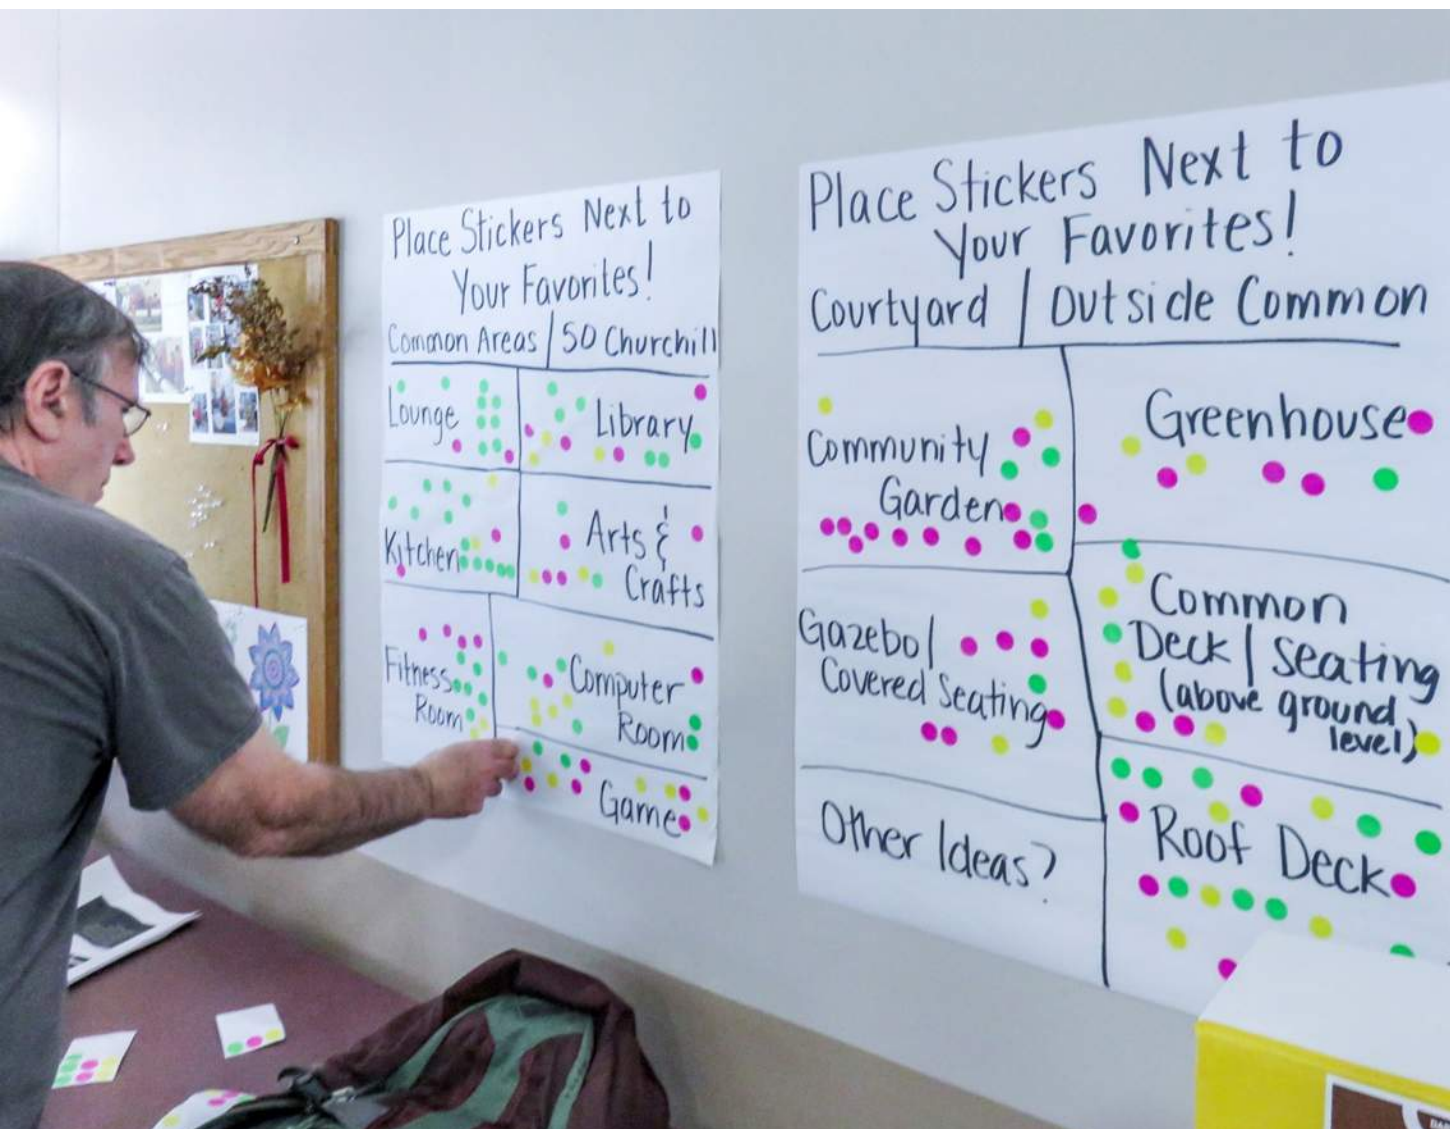 Place Stickers Next to
Your Favorites!
Common Areas / 50 Churchill
Lounge
Library
Kitchen
Arts &
Crafts
Fitness
Room
Computer
Room
Game
Place Stickers Next to
Your Favorites!
Courtyard / Outside Common
Community
Garden
Greenhouse
Gazebo/
Covered Seating
Common
Deck / Seating
(above ground
level)
Other Ideas?
Roof Deck